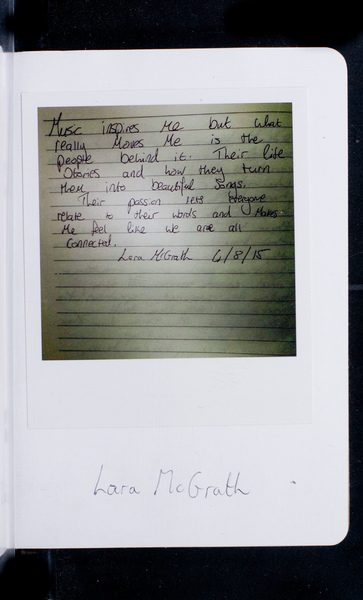 Music inspires me but what
really moves me is the
people behind it. Their life
stories and how they turn
them into beautiful songs.
Their passion lets everyone
relate to their words and makes
me feel like we are all
connected.
Lara McGrath 6/8/15
Lara McGrath